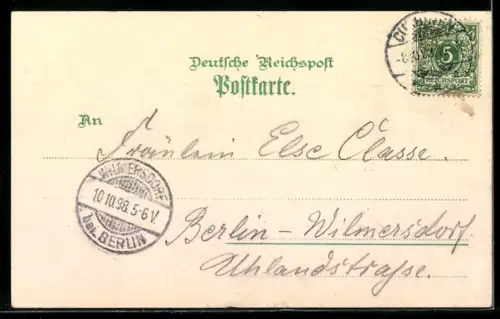 Deutsche Reichspost
Postkarte.
5
REICHSPOST
An
Fräulein Else Classe.
WILMERSDORF
10.10.98. 5-6V.
bei BERLIN
Berlin-Wilmersdorf
Uhlandstraße.